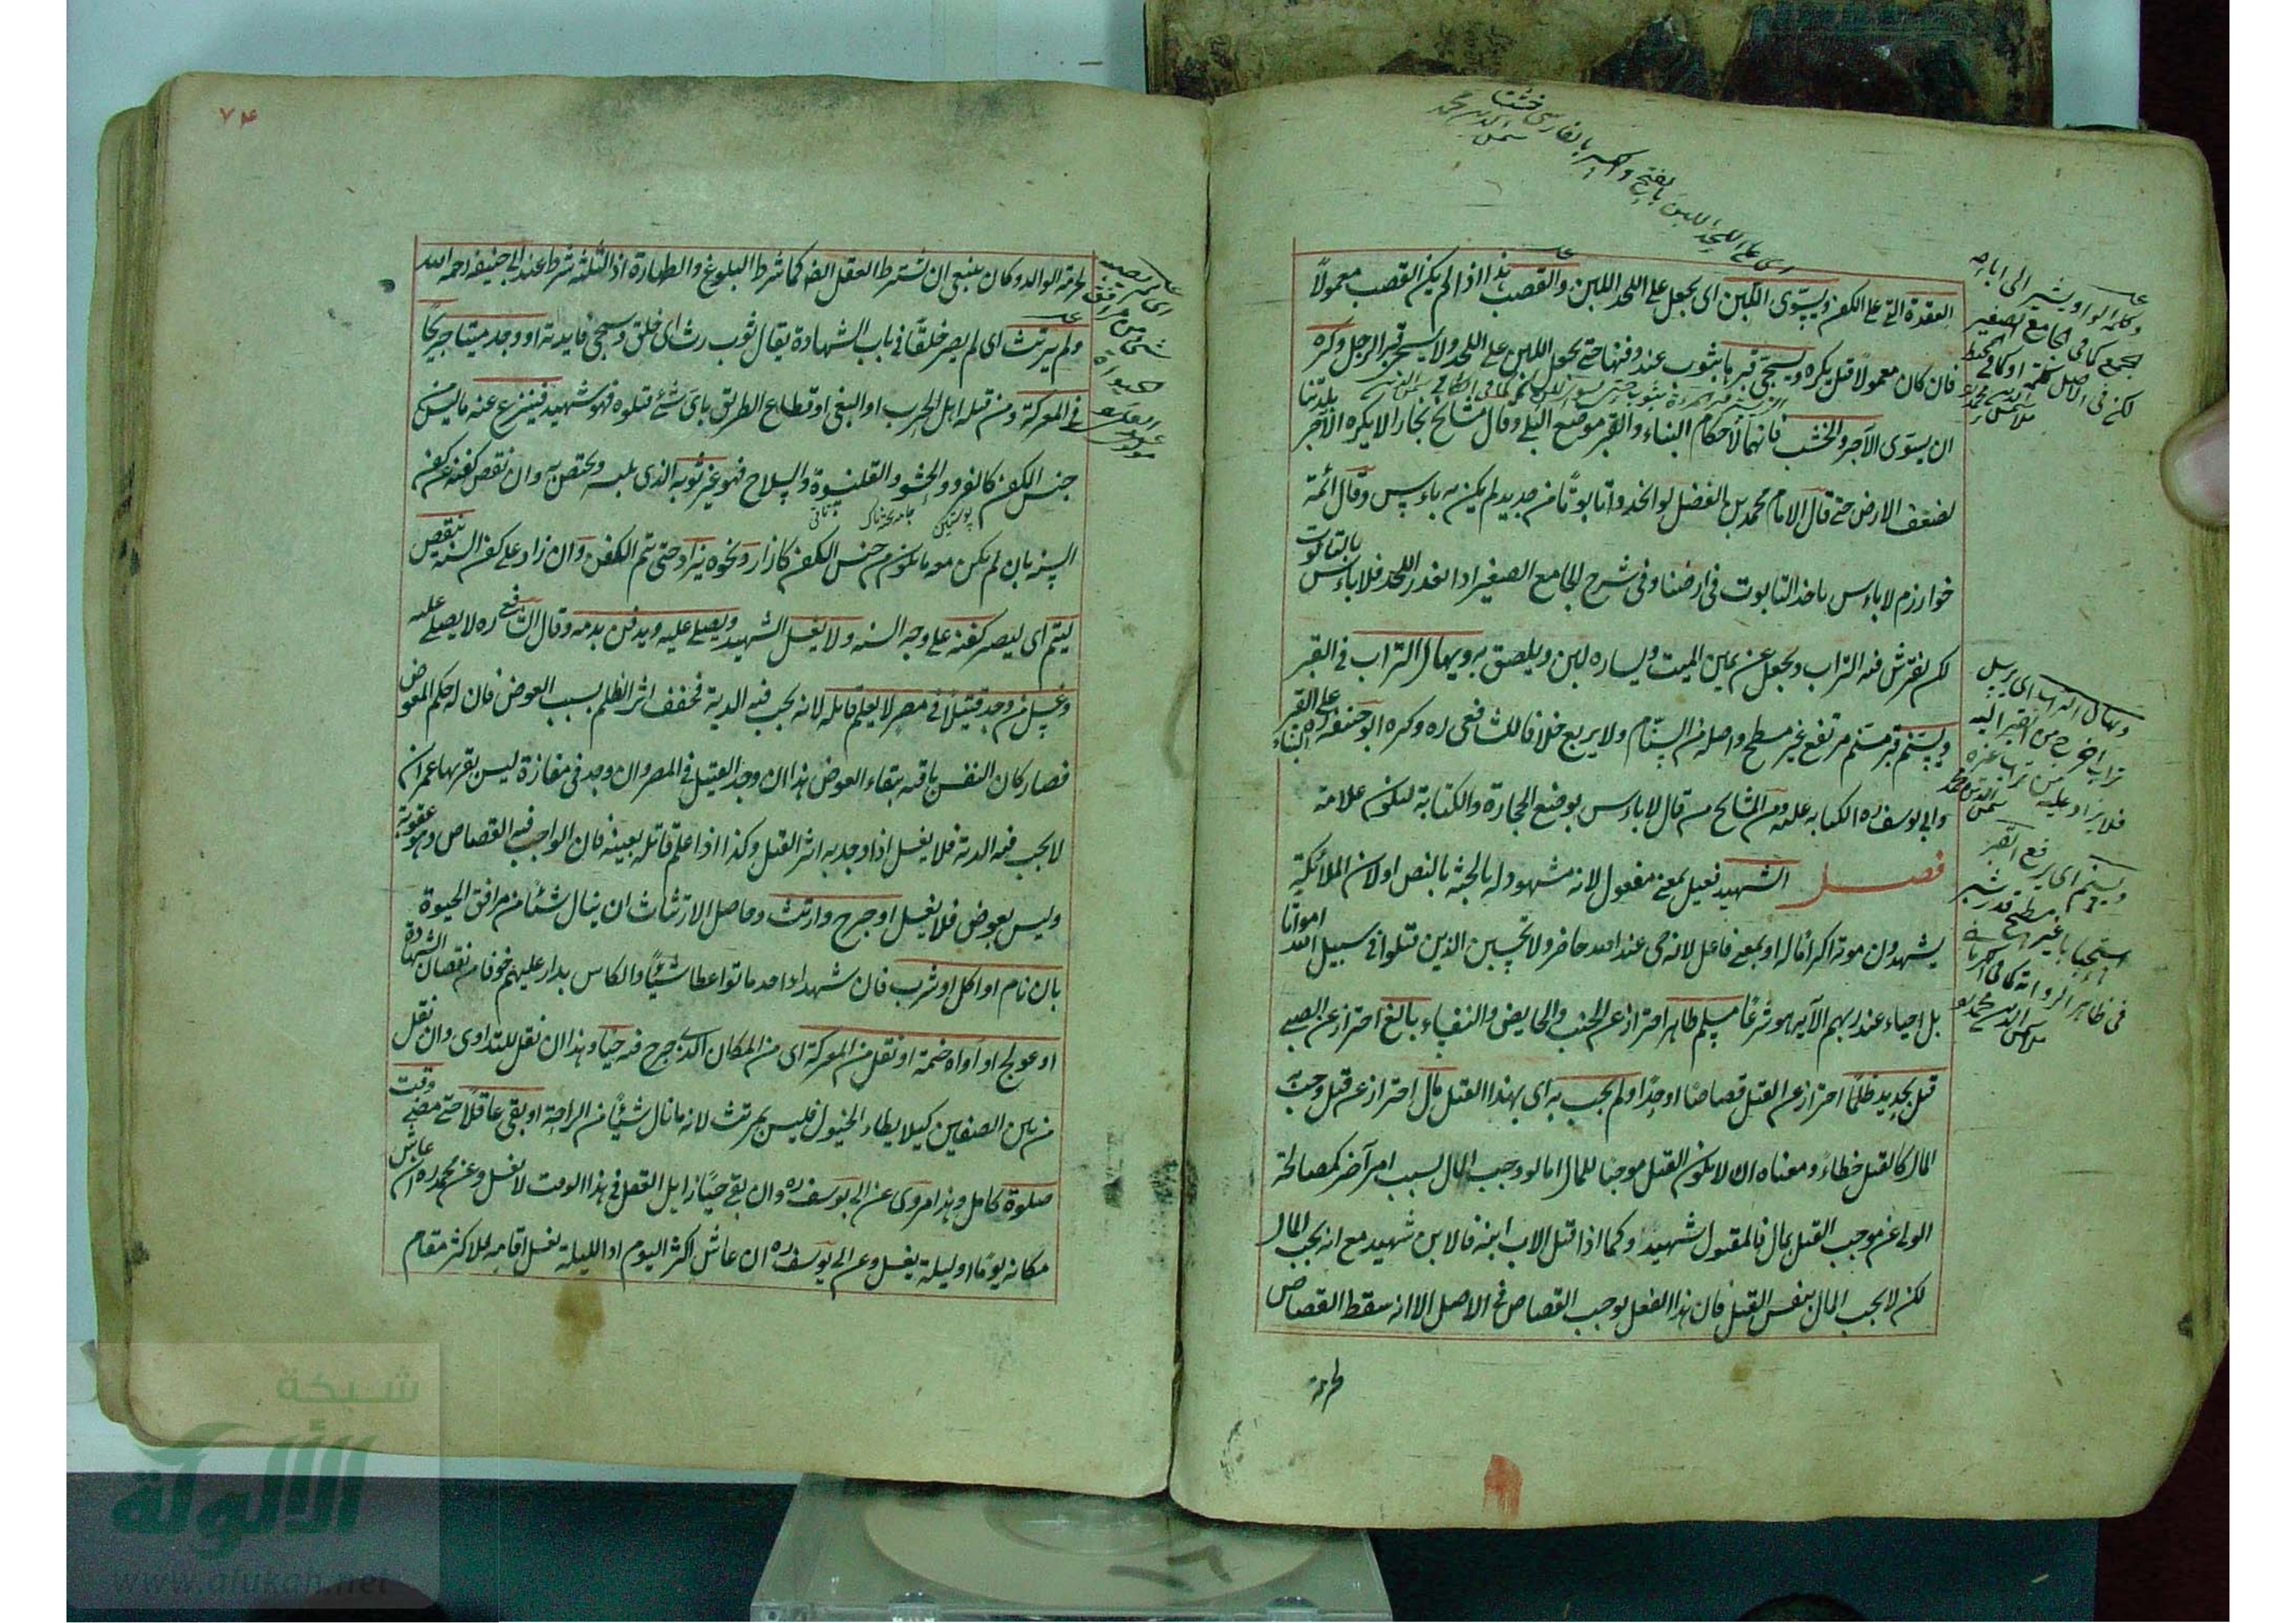 العقدة التي على الكفن ويسوى اللبن اى يجعل على اللحد اللبن والقصب هذا اذا لم يكن القصب معمولاً
فان كان معمولا قيل يكره ويسجى قبرها بثوب عند دفنها حتى يجعل اللبن على اللحد ولا يسجى قبر الرجل وكره
ان يسوى الآجر والخشب فانهما لاحكام البناء والقبر موضع البلى وقال مشايخ بخارا لا يكره الآجر بلدتنا
لضعف الارض حتى قال الامام محمد بن الفضل لو اتخذوا تابوتا من حديد لم يكن به باءس وقال ائمة
خوارزم لا باءس باخذ التابوت فى ارضنا وفى شرح الجامع الصغير اذا تعذر اللحد فلا باءس بالتابوت
لكن يفترش فيه التراب ويجعل عن يمين الميت ويساره لبن ويلصق به ويهال التراب فى القبر
ويسنّم قبر مسنم مرتفع غير مسطح واصله من السنام ولا يربع خلافا للشافعى ره وكره ابو حنيفة ره البناء على القبر
وابى يوسف ره الكتابه عليه ومن المشايخ من قال لا باءس بوضع الحجارة والكتابة ليكون علامة
فصل الشهيد فعيل بمعنى مفعول لانه مشهود له بالجنة بالنص اولان الملائكة
يشهدون موته اكراما له او بمعنى فاعل لانه حى عند الله حاضر ولا تحسبن الذين قتلوا فى سبيل الله امواتا
بل احياء عند ربهم الآية هو شرعًا مسلم طاهر احتراز عن الجنب والحايض والنفساء بالغ احتراز عن الصبى
قتل بحديد ظلمًا احتراز عن القتل قصاصًا او حدًا ولم يجب به اى بهذا القتل مال احتراز عن قتل وجب به
المال كالقتل خطاءً ومعناه ان لا يكون القتل موجبًا للمال اما لو وجب المال بسبب امر آخر كمصالحة
الولى عن موجب القتل بمال فالمقتول شهيد او كما اذا قتل الاب ابنه فالابن شهيد مع انه يجب المال
لكن لا يجب المال بنفس القتل فان هذا الفعل يوجب القصاص فى الاصل الا انه سقط القصاص
لحرمة
اى على اللحد اللبن بالفتح والكسر بالفارسى خشت
شمس الدين محمد
وكلمة الواو يشير الى اباحة
الجمع كما فى الجامع الصغير
لكن فى الاصل كلمة او كما فى المحيط
ويهال التراب اى يرسل
تراب اخرج من القبر اليه
فلا يزاد عليه من تراب غيره
شمس الدين محمد
ويسنم اى يرفع القبر
استحبابا غير مسطح قدر شبر
فى ظاهر الرواية كما فى الكرمانى
شمس الدين محمد
۷۴
لحرمة الوالد وكان ينبغى ان يشترط العقل ايضا كما شرط البلوغ والطهارة اذ الثلثة شرط عند ابى حنيفة رحمه الله
ولم يرتث اى لم يصر خلقًا فى باب الشهادة يقال ثوب رث اى خلق وسيجى فايدته او وجد ميتا جريحًا
فى المعركة ومن قتله اهل الحرب او البغى او قطاع الطريق باى شئ قتلوه فهو شهيد فينزع عنه ما ليس من
جنس الكفن كالفرو والحشو والقلنسوة والسلاح فهو غير ثوبه الذى يلبسه ويختص به وان نقص كفنه عن كفن
السنة بان لم يكن معه ما يكون من جنس الكفن كازار ونحوه يزاد حتى يتم الكفن وان زاد على كفن السنة ينقص
ليتم اى ليصير كفنه على وجه السنة ولا يغسل الشهيد ويصلى عليه ويدفن بدمه وقال الشافعى ره لا يصلى عليه
وغسل من وجد قتيلاً فى مصر لا يعلم قاتله لانه يجب فيه الدية فخفف اثر الظلم بسبب العوض فان له حكم المعوض
فصار كان النفس باقية ببقاء العوض هذا ان وجد القتيل فى المصر وان وجد فى مفازة ليس بقربها عمران
لا يجب فيه الدية فلا يغسل اذا وجد به اثر القتل وكذا اذا علم قاتله بعينه فان الواجب فيه القصاص وهو عقوبة
وليس بعوض فلا يغسل او جرح وارتث وحاصل الارتثاث ان ينال شئًا من مرافق الحيوة
بان نام او اكل او شرب فان شهداء احد ماتوا عطاشيًا والكاس يدار عليهم خوفا من نقصان الشهادة
او عولج او آواه خيمة او نقل من المعركة اى من المكان الذى جرح فيه حيًا وهذا ان نقل للتداوى وان نقل
من بين الصفين كيلا يطاء الخيول فليس بمرتث لانه ما نال شيئًا من الراحة او بقى عاقلاً حتى مضى وقت
صلوة كامل وهذا مروى عن ابى يوسف ره وان بقى حيًا زايل العقل فى هذا الوقت لا يغسل وعن محمد ره ان عاش
مكانه يومًا او ليلة يغسل وعن ابى يوسف ره ان عاش اكثر اليوم او الليلة يغسل اقامة للاكثر مقام
شبكة
الألوكة
www.alukah.net